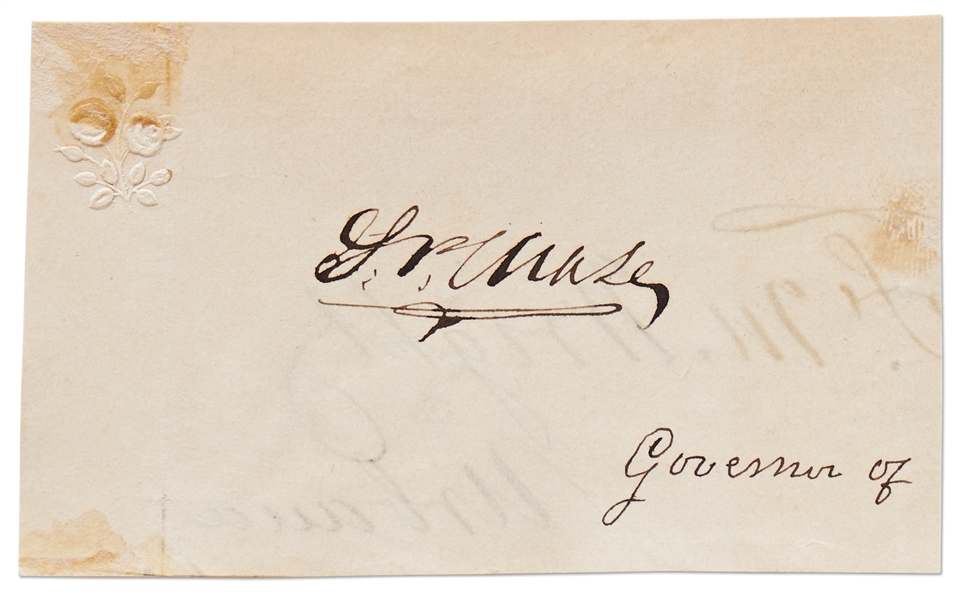 S. P. Chase
Governor of